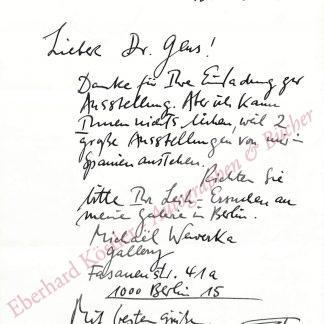 Lieber Dr. Gens!
Danke für Ihre Einladung zur
Ausstellung. Aber ich kann
Ihnen nichts leihen, weil 2
große Ausstellungen von mir in
Spanien anstehen.
Richten Sie
bitte Ihr Leih-Ersuchen an
meine Galerie in Berlin.
Michael Wewerka
Gallery
Fasanenstr. 41a
1000 Berlin 15
Mit besten Grüßen
Eberhard Köstler Autographen & Bücher